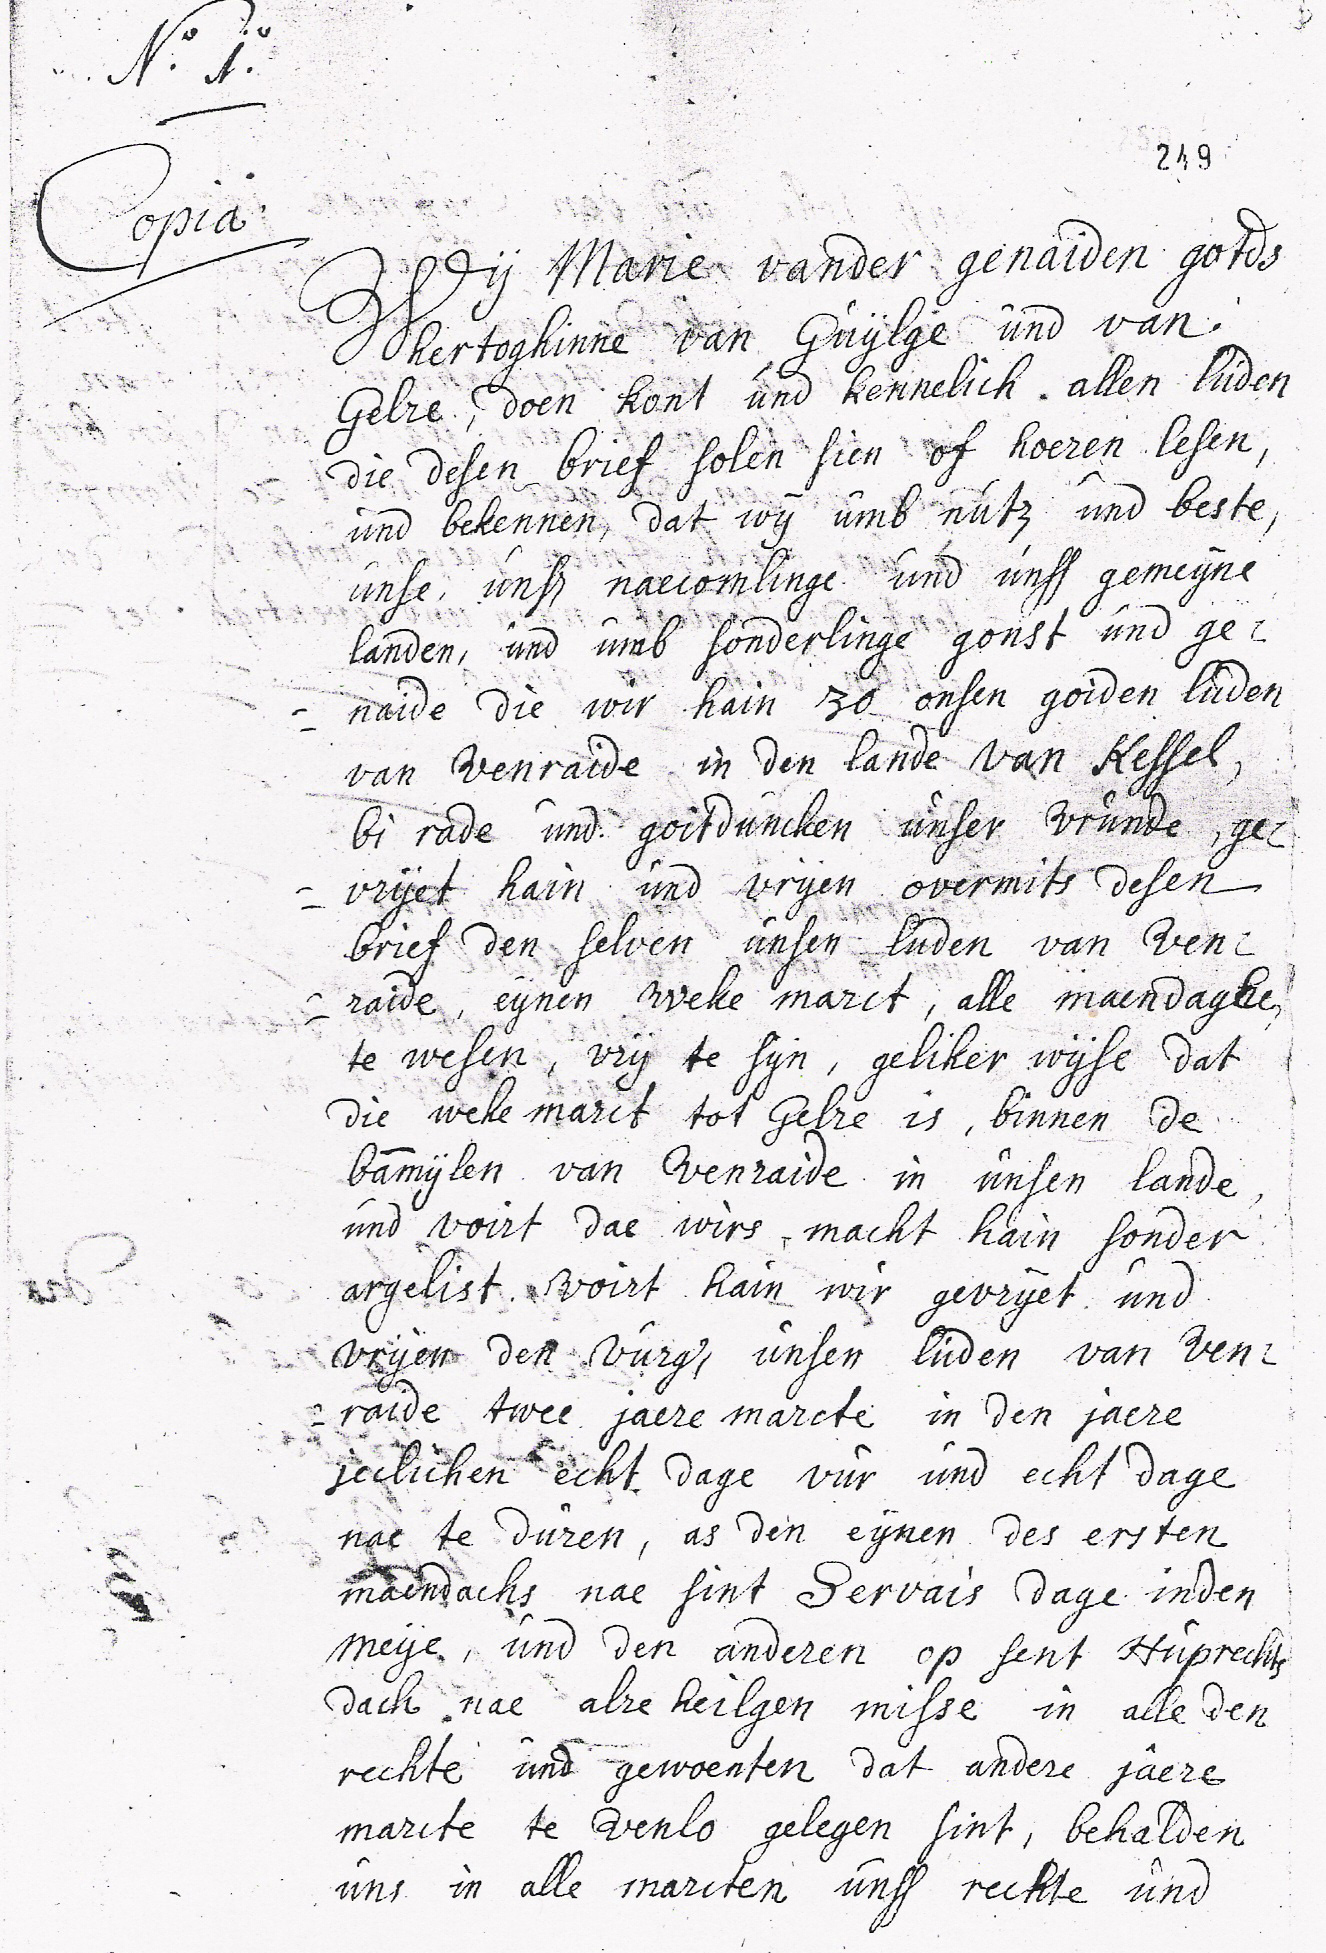 N.º 1.º
249
Copia
Wij Marie vander genaiden gotds
hertoghinne van Guijlge und van
Gelre, doen kont und kennelich allen luden
die desen brief solen sien of hoeren lesen,
und bekennen, dat wij umb nutz und beste,
unse, unss naecomlinge und unss gemeijne
landen, und umb sonderlinge gonst und ge=
=naide die wir hain zo onsen goiden luden
van Venraide in den lande van Kessel,
bi rade und goitduncken unser vrunde, ge=
=vrijet hain und vrijen overmits desen
brief den selven unsen luden van Ven=
=raide, eijnen weke marct, alle maendaghe,
te wesen, vrij te sijn, geliker wijse dat
die weke marct tot Gelre is, binnen de
bāmijlen van Venraide in unsen lande,
und voirt dae wirs macht hain sonder
argelist. Voirt hain wir gevrijet und
vrijen den vurg, unsen luden van Ven=
=raide twee jaere marcte in den jaere
jeclichen echt dage vur und echt dage
nae te duren, as den eijnen des ersten
maendachs nae sint Servais dage inden
meije, und den anderen op sent Huprechts
dach nae alre heilgen misse in alle den
rechte und gewoenten dat andere jaere
marcte te Venlo gelegen sint, behalden
uns in alle marcten unss rechte und